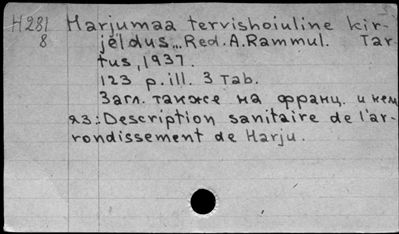 H281 Harjumaa tervishoiuline kir-
8 jeldus... Red. A. Rammul. Tar-
tus, 1937.
123 p. ill. 3 tab.
Загл. также на франц. и нем
яз: Description sanitaire de l'ar-
rondissement de Harju.